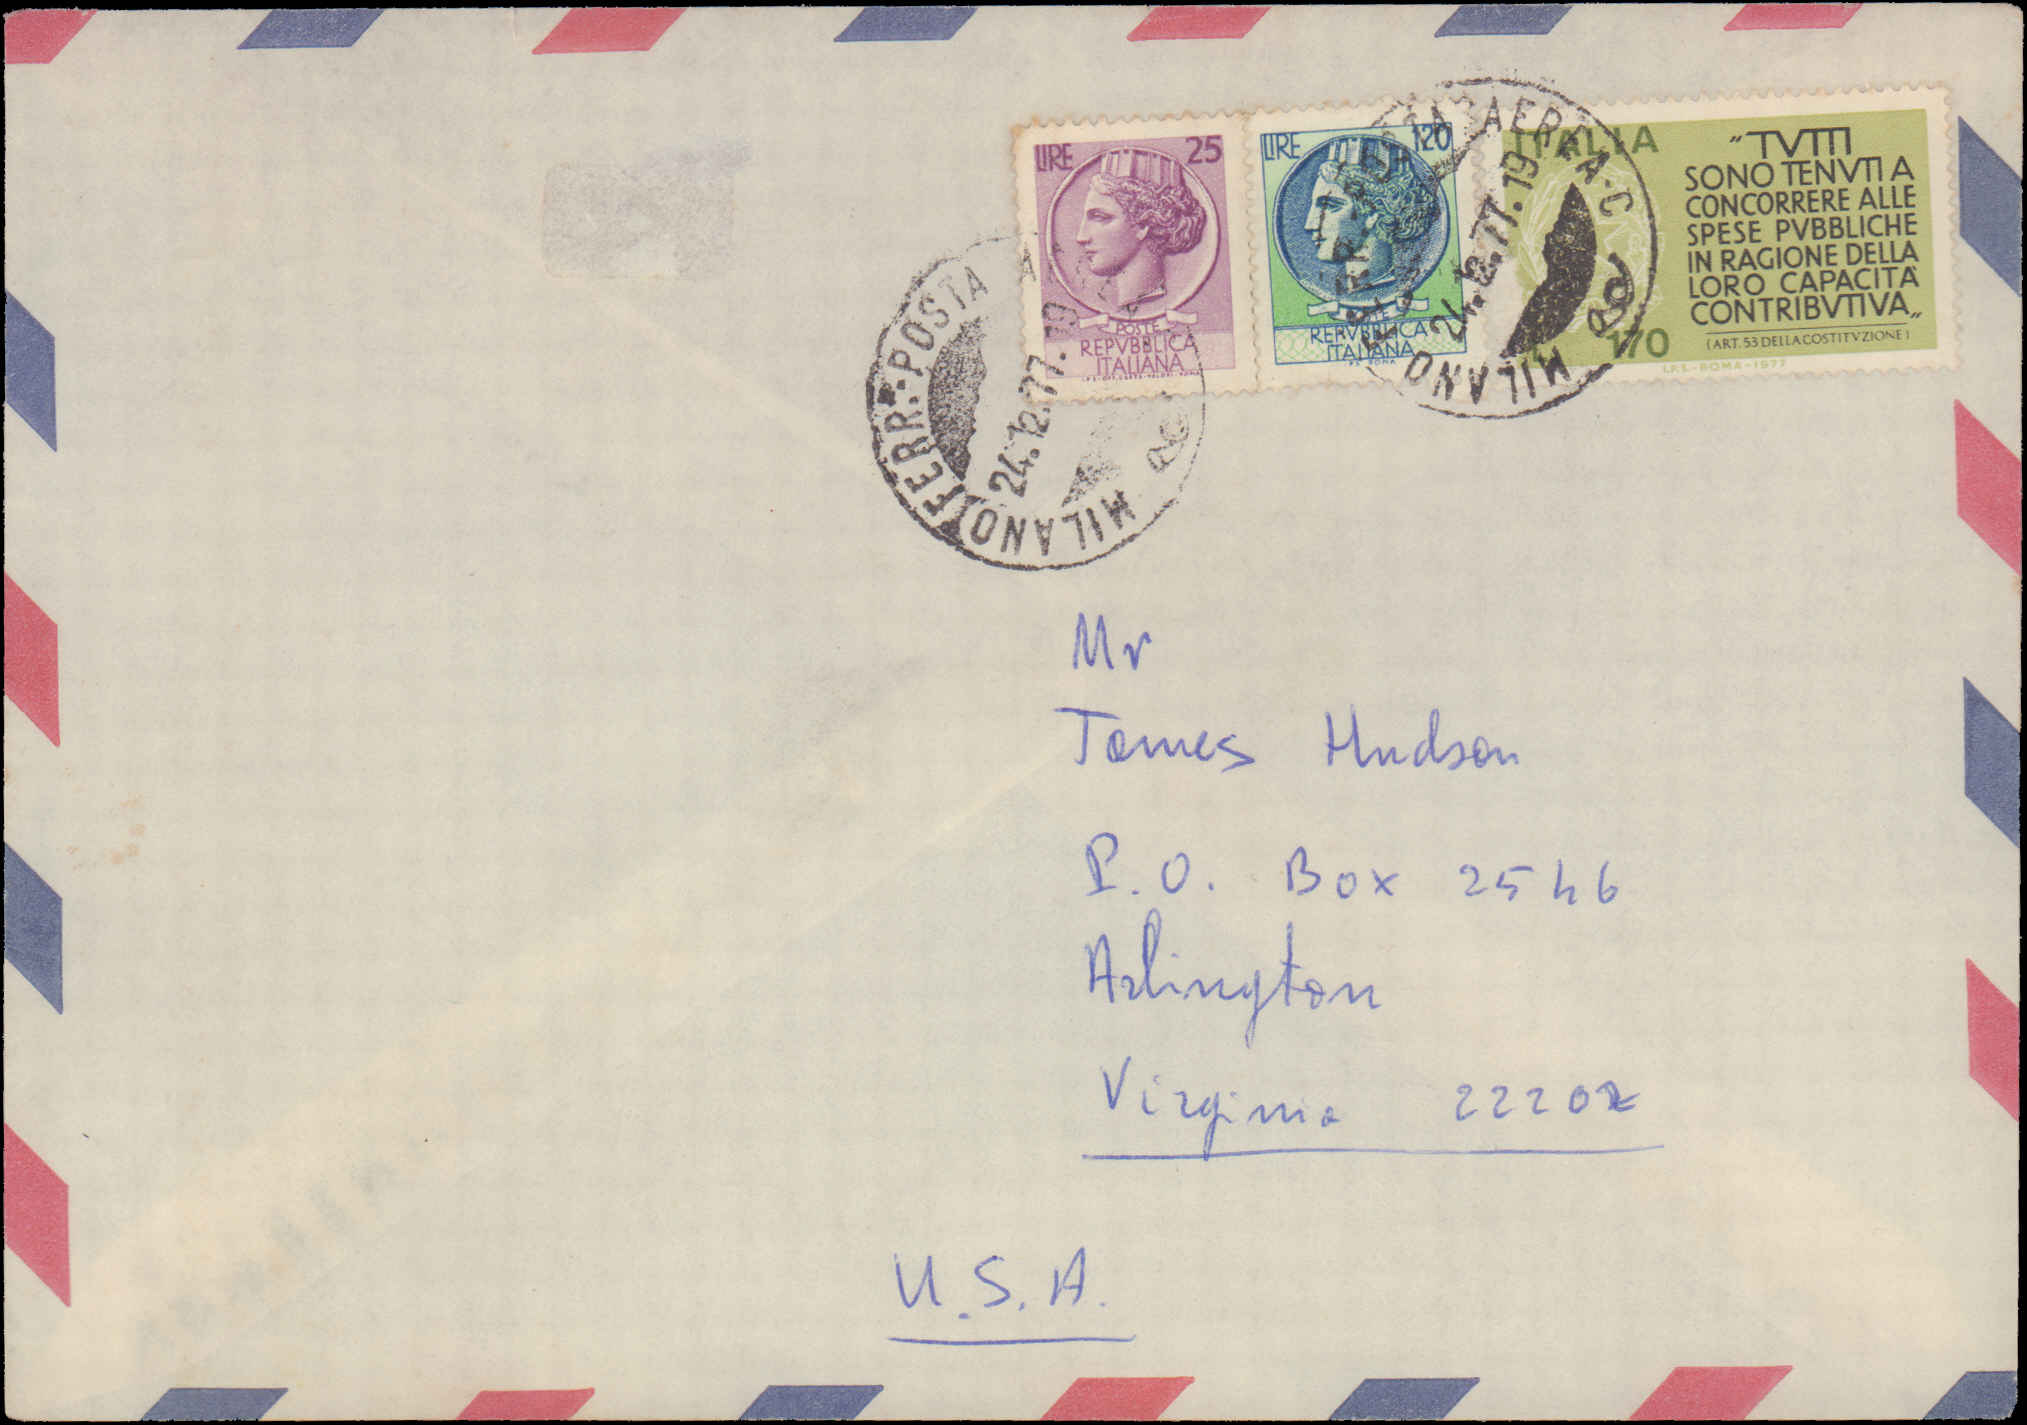 LIRE 25
POSTE
REPVBBLICA
ITALIANA
LIRE 120
REPVBBLICA
ITALIANA
ITALIA
170
"TVTTI
SONO TENVTI A
CONCORRERE ALLE
SPESE PVBBLICHE
IN RAGIONE DELLA
LORO CAPACITÀ
CONTRIBVTIVA„
(ART. 53 DELLA COSTITVZIONE)
I.P.S.-ROMA-1977
MILANO FERR. POSTA
24.12.77.19
MILANO AEREA.C
24.12.77.19
Mr
James Hudson
P.O. Box 2546
Arlington
Virginia 22202
U.S.A.